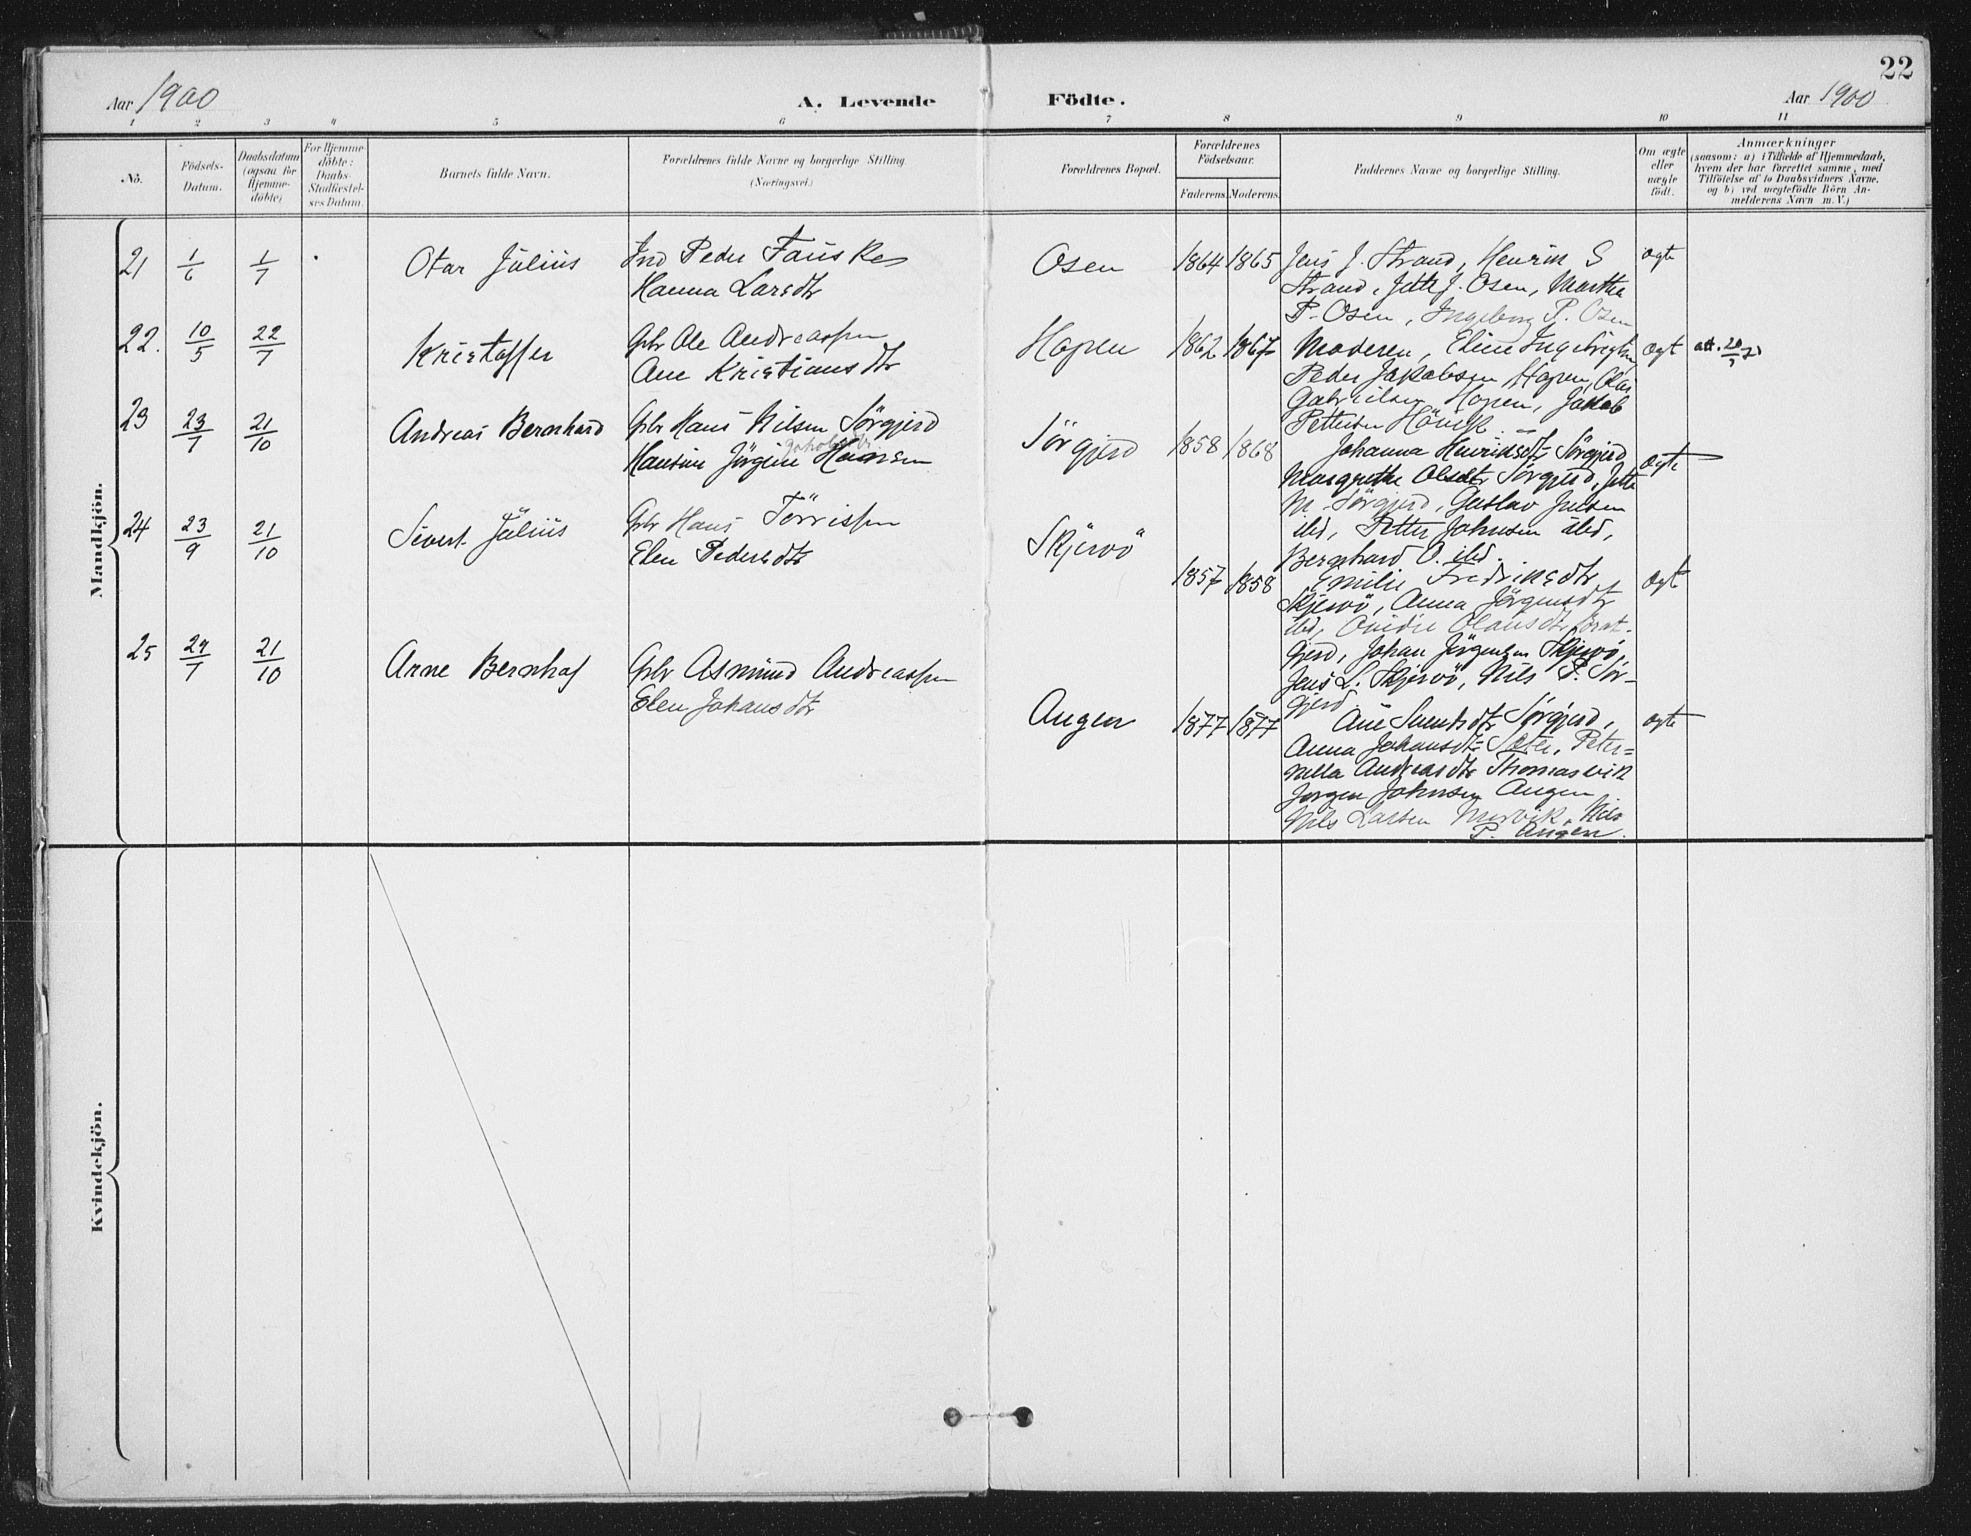 22
Aar 1900
A. Levende Födte.
Aar 1900
1 2 3 4 5 6 7 8 9 10 11
No.
Födsels-Datum.
Daabsdatum (ogsaa for Hjemme-döbte)
For Hjemme-döbte: Daabs-Stadfæstel-ses Datum.
Barnets fulde Navn.
Forældrenes fulde Navne og borgerlige Stilling. (Næringsvei.)
Forældrenes Bopæl.
Forældrenes Födselsaar.
Faderens. Moderens.
Faddernes Navne og borgerlige Stilling.
Om ægte eller uægte födt.
Anmærkninger
(saasom: a) i Tilfælde af Hjemmedaab,
hvem der har forrettet samme, med
Tilföielse af to Daabsvidners Navne,
og b) ved uægtefödte Börn An-
melderens Navn m. V.)
Mandkjön.
21 1/6 1/7 Otar Julius
Ind Peder Fauske
Hanna Larsdtr
Osen 1864 1865
Jens J. Strand, Henrik S
Strand, Jette J. Osen, Martha
P. Osen, Ingeborg P. Osen
ægte
22. 10/5 22/7 Kristoffer
Gbr Ole Andreassen
Ane Kristiansdtr
Hopen 1862 1867
Moderen, Eline Ingebrigtsen
Peder Jakobsen Hopen, Olai
Gabrielsen Hopen, Jakob
Pettersen
ægt
att. 20/7
23 23/7 21/10 Andreas Bernhard
Gbr Hans Nilsen Sörgjerd
Jakobsdtr
Hansine Jörgine Hansen
Sörgjerd 1858 1868
Johanna Henriksdtr Sörgjerd
Margrethe Olsdtr Sörgjerd, Jette
M. Sörgjerd, Gustav Julsen
ibd, Petter Johnsen ibd,
Bernhard O. ibd.
ægte
24 23/9 21/10 Sivert Julius
Gbr Hans Törrissen
Elen Pedersdtr
Skjervö 1857 1858
Emilie Fredriksdtr
Skjervö, Anna Jörgensdtr
ibd, Ovidie Olausdtr Brat-
gjerd, Johan Jörgensen Skjervö,
Jens L. Skjervö, Nils P. Sör-
gjerd
ægt
25 29/7 21/10 Arne Bernhof
Gbr Asmund Andreassen
Elen Johansdtr
Angen 1877 1877
Ane Svendsdtr Sörgjerd,
Anna Johansdtr Sæter, Peter-
nella Andreasdtr Thomasvik
Jörgen Johnsen Angen
Nils Larsen Mervik, Nils
P. Angen.
ægte
Kvindekjön.